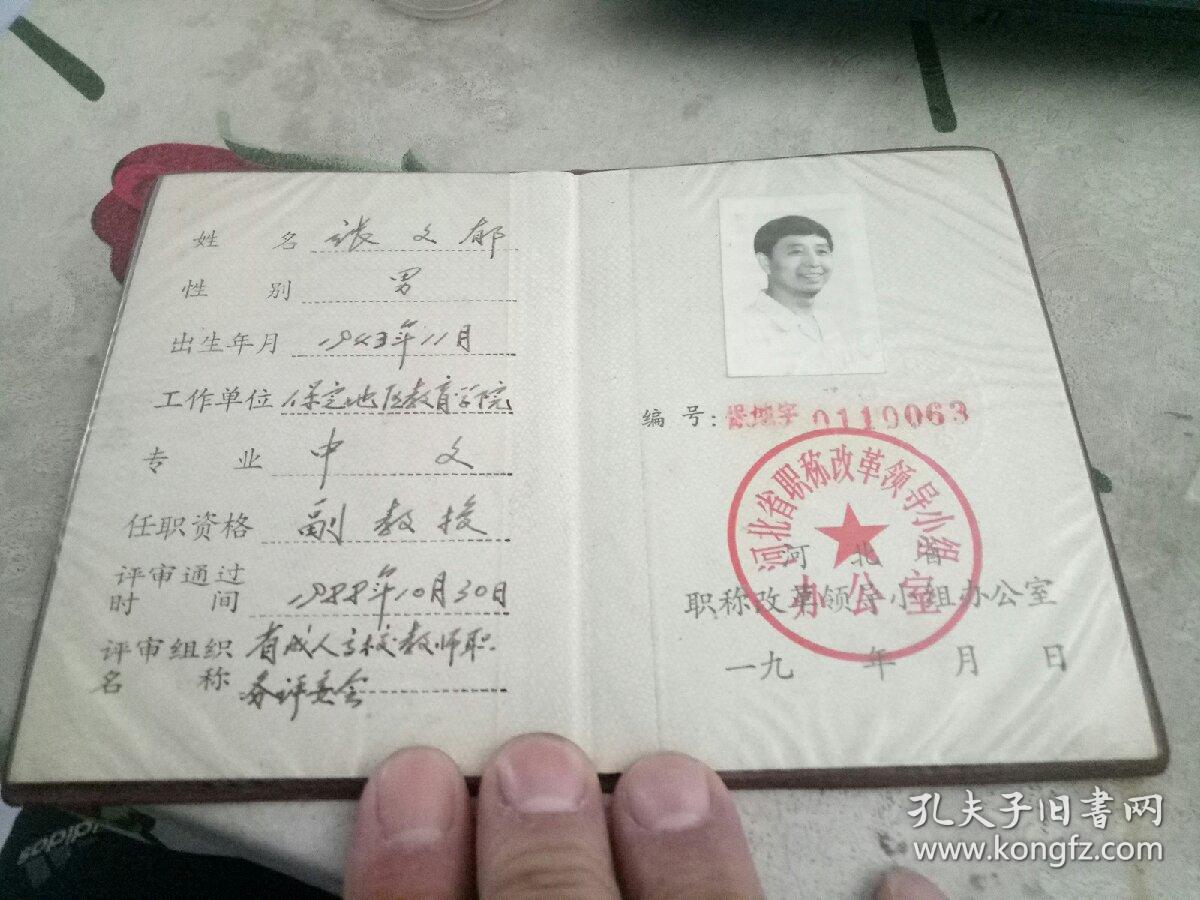 姓 名 张文郁
性 别 男
出生年月 1943年11月
工作单位 保定地区教育学院
专 业 中 文
任职资格 副教授
评审通过
时 间 1988年10月30日
评审组织 省成人高校教师职
名 称 务评委会
编 号: 0119063
河北省职称改革领导小组
办公室
河 北 省
职称改革领导小组办公室
一九 年 月 日
adidas
孔夫子旧书网
www.kongfz.com